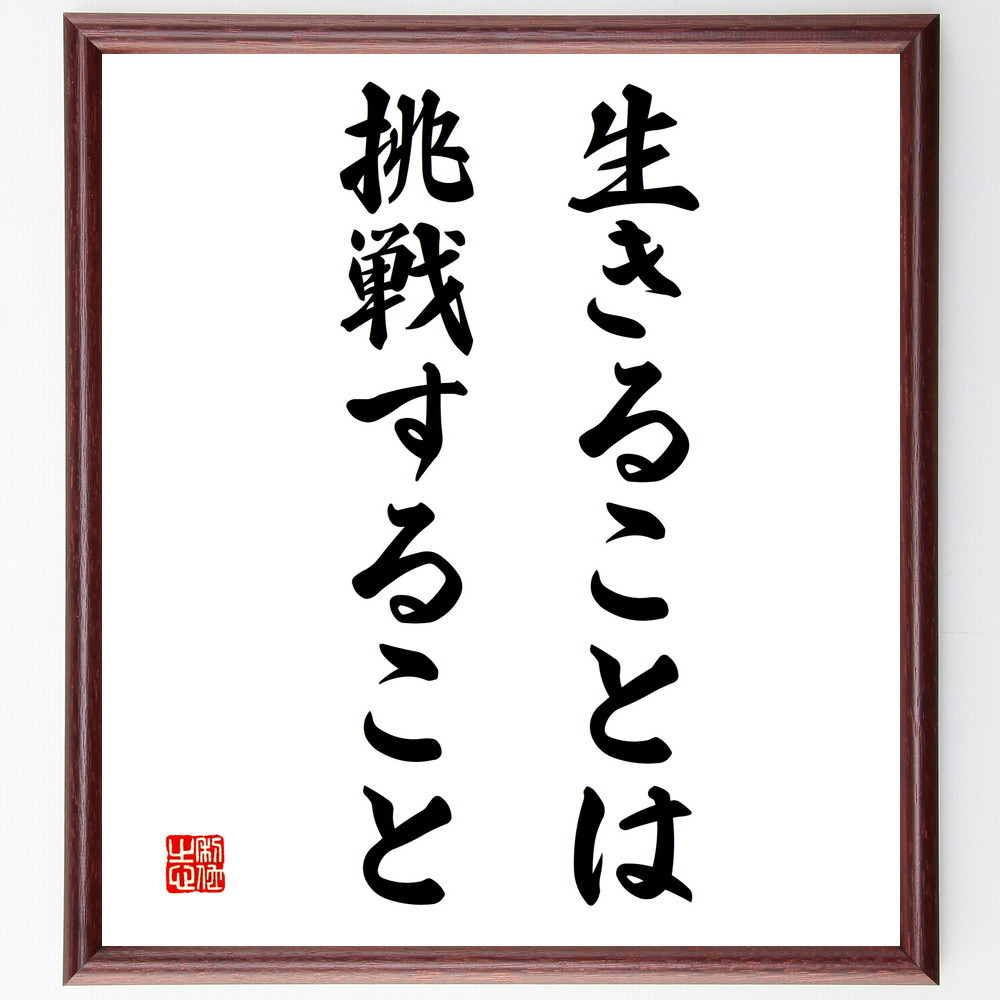 生きることは
挑戦すること